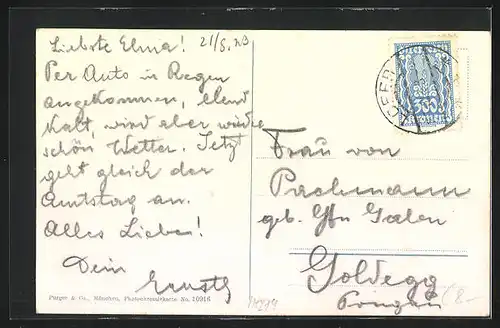 Liebste Elma! 21/8.23
Per Auto in Regen
angekommen, elend
kalt, wird aber wieder
schön Wetter. Jetzt
geht gleich der
Amtstag an.
Alles Liebe!
Dein
Purger & Co., München, Photochromiekarte No. 10916
300
KRONEN
Frau von
Pachmann
geb. Gfn Galen
Goldegg
Pongau